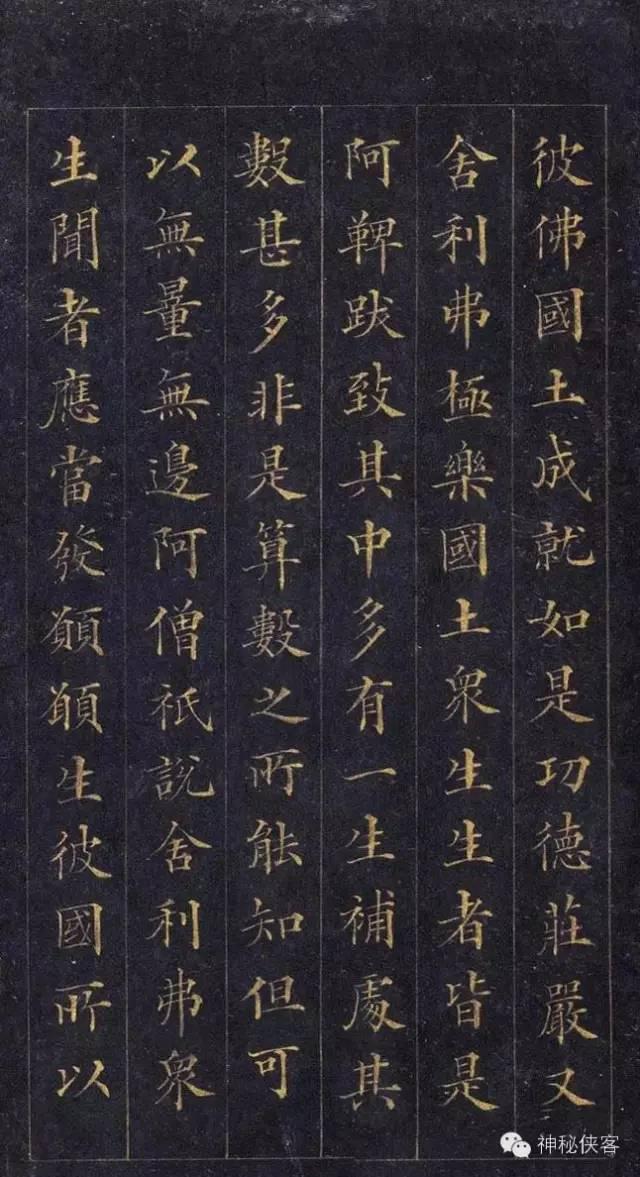 彼佛國土成就如是功德莊嚴又
舍利弗極樂國土衆生生者皆是
阿鞞跋致其中多有一生補處其
數甚多非是算數之所能知但可
以無量無邊阿僧祇說舍利弗衆
生聞者應當發願願生彼國所以
神秘侠客